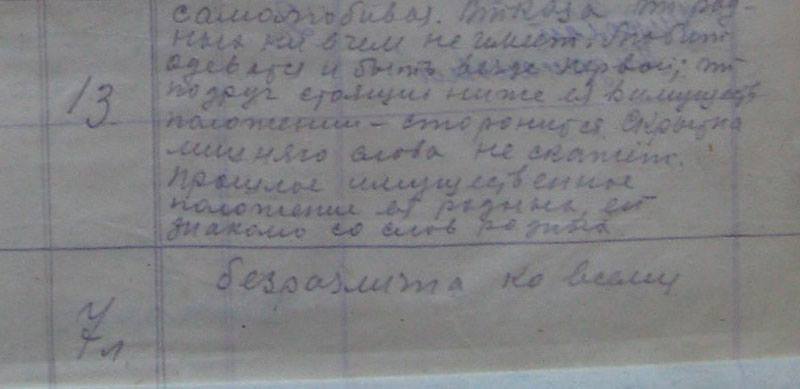 самолюбивая. Отказа от род-
ных ни в чем не имеет. Любит
одеваться и быть везде первой; от
13 подруг стоящих ниже ея в имуществ
положении – сторонится. Скрытна
лишняго слова не скажет.
Прошлое имущественное
положение ея родных ей
знакомо со слов родных
безразлична ко всему
7 л